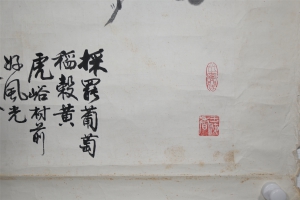 採罷葡萄
稻穀黄
虎峪村前
好風光